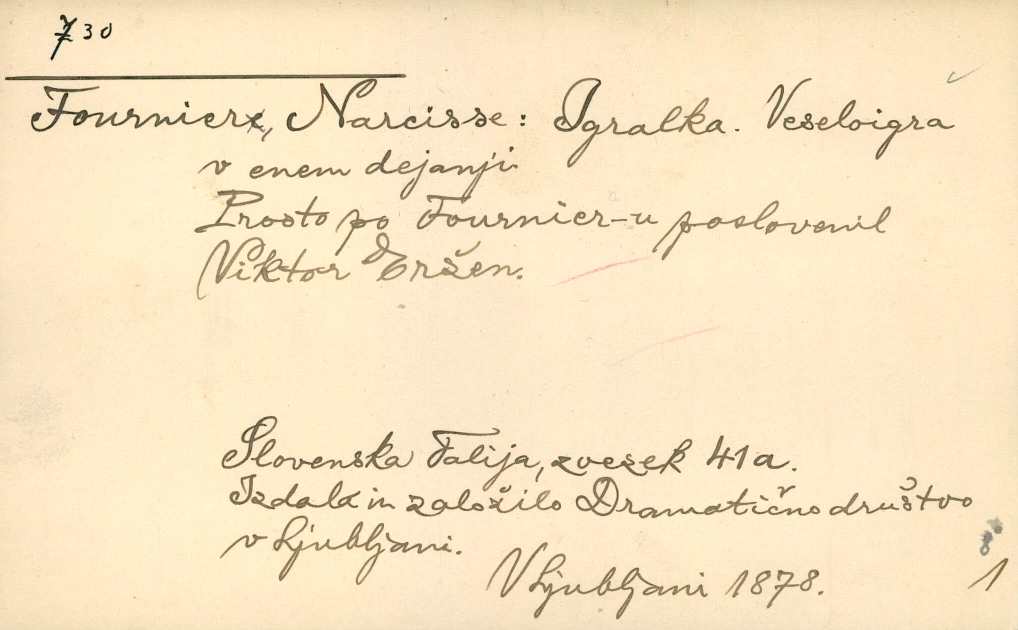 730
Fournier, Narcisse: Igralka. Veseloigra
v enem dejanji.
Prosto po Fournier-u poslovenil
Viktor Eržen.
Slovenska Talija, zvezek 41a.
Izdalo in založilo Dramatično društvo
v Ljubljani.
V Ljubljani 1878.
1